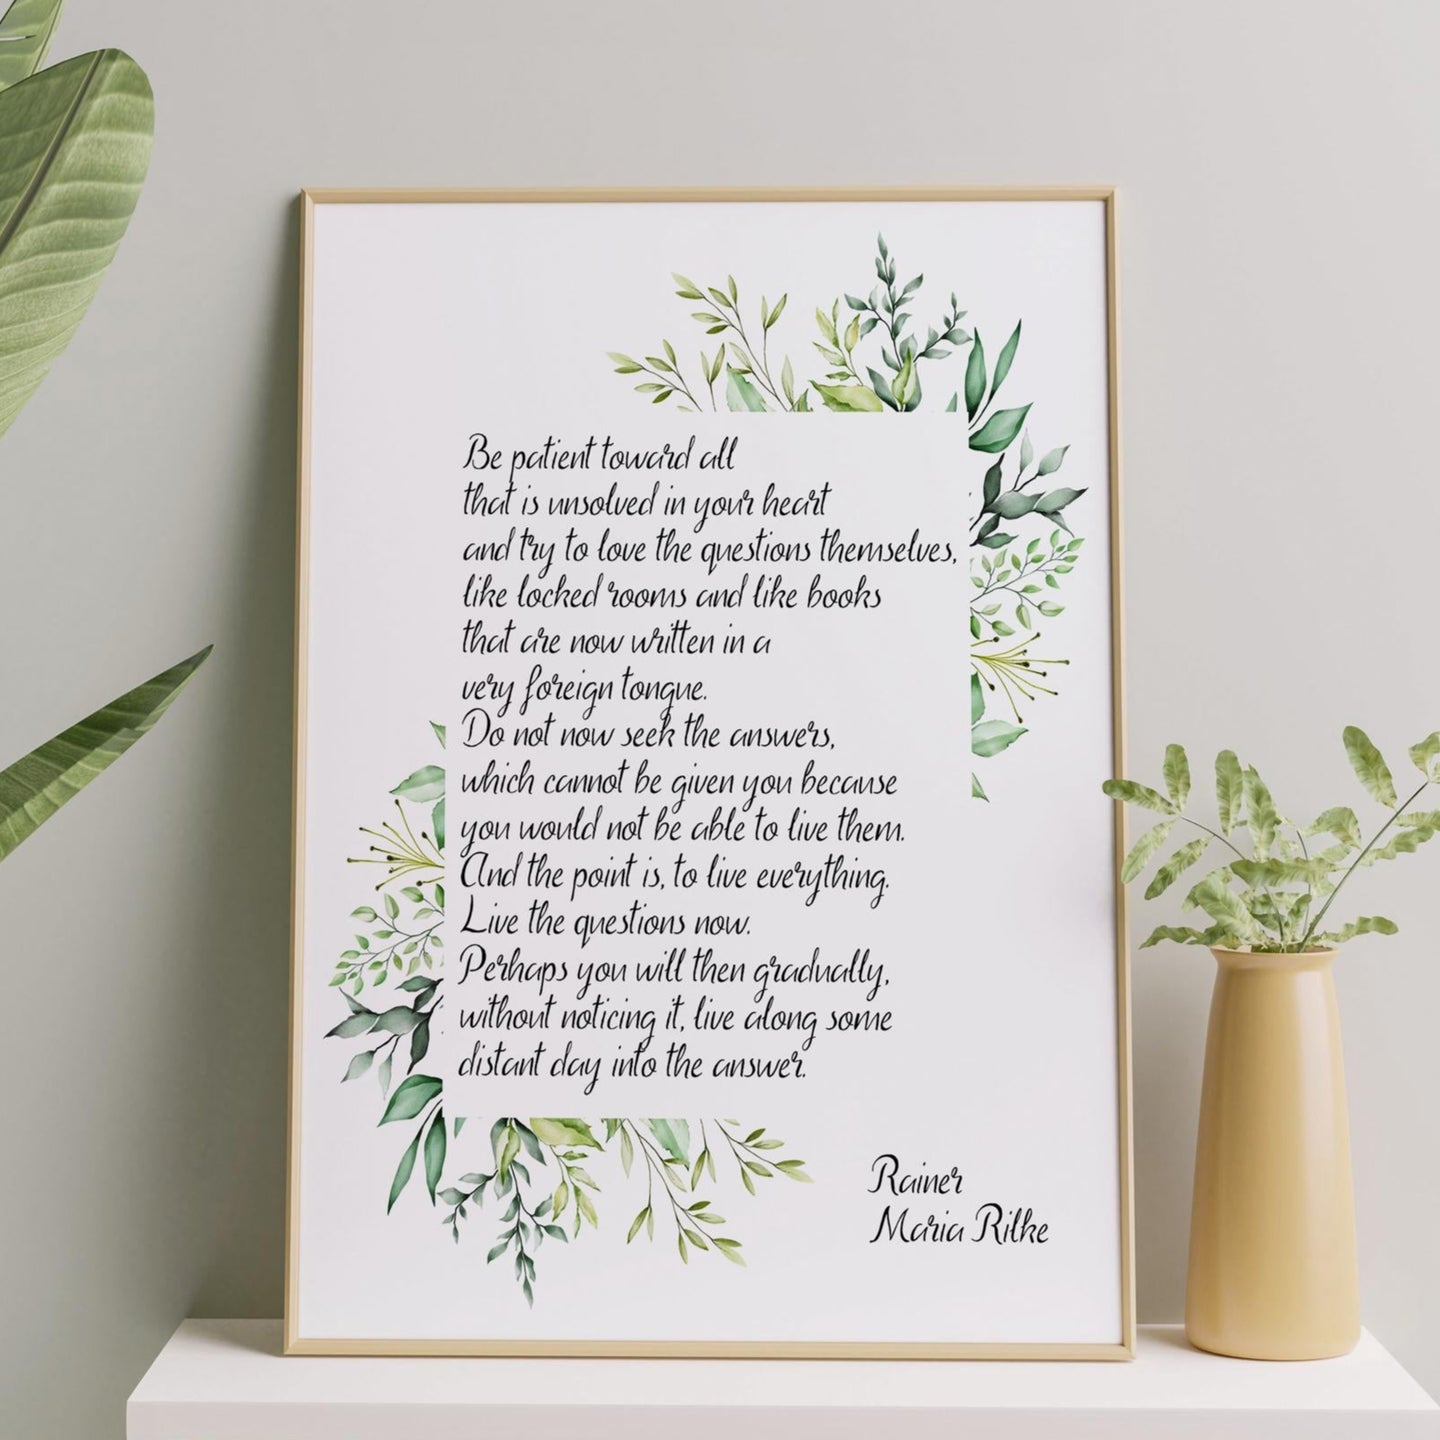 Be patient toward all
that is unsolved in your heart
and try to love the questions themselves,
like locked rooms and like books
that are now written in a
very foreign tongue.
Do not now seek the answers,
which cannot be given you because
you would not be able to live them.
And the point is, to live everything.
Live the questions now.
Perhaps you will then gradually,
without noticing it, live along some
distant day into the answer.
Rainer
Maria Rilke